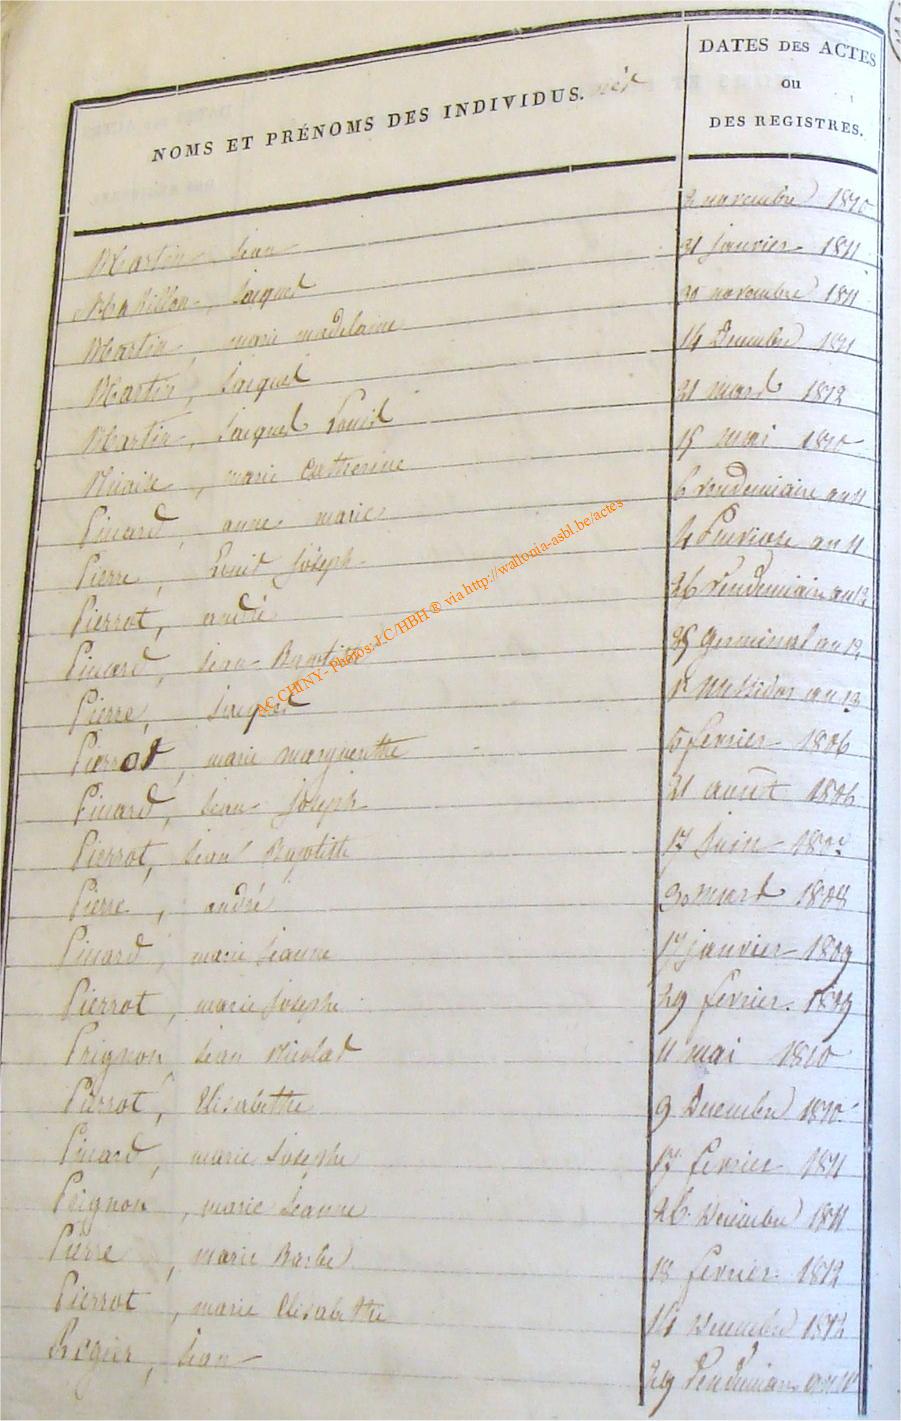 NOMS ET PRÉNOMS DES INDIVIDUS.
DATES DES ACTES
ou
DES REGISTRES.
Martin, Jean 2 novembre 1810
Mabillon, Jacques 31 janvier 1811
Martin, marie madelaine 30 novembre 1811
Martin, Jacques 14 Decembre 1811
Martin, Jacques Louis 31 mars 1812
marie catherine 15 mai 1810
Pinard, anne marie 6 vendemiaire an 11
Pierre, Louis Joseph 4 Pluviose an 11
Pierrot, andré 26 vendemiaire an 13
Pinard, Jean Baptiste 25 germinal an 13
Pierre, Jacques 1r Messidor an 13
Pierrot, marie marguerithe 5 fevrier 1806
Pinard, Jean Joseph 31 août 1806
Pierrot, Jean Baptiste 17 Juin
Pierre, andré 30 mars 1808
Pinard, marie Jeanne 17 janvier 1809
Pierrot, marie Josephe fevrier 1809
Prignon Jean Nicolas 11 mai 1810
Pierrot, Elisabethe 9 Decembre 1810
Pinard, marie Josephe 17 fevrier 1811
Prignon, marie Jeanne 26 Decembre 1811
Pierre, marie Barbe 18 fevrier 1812
Pierrot, marie Elisabethe 14 Decembre 1812
Rogier, Jean 29 Vendemiaire an
AC CHINY- Photos: J.C/HBH ® via http://wallonia-asbl.be/actes